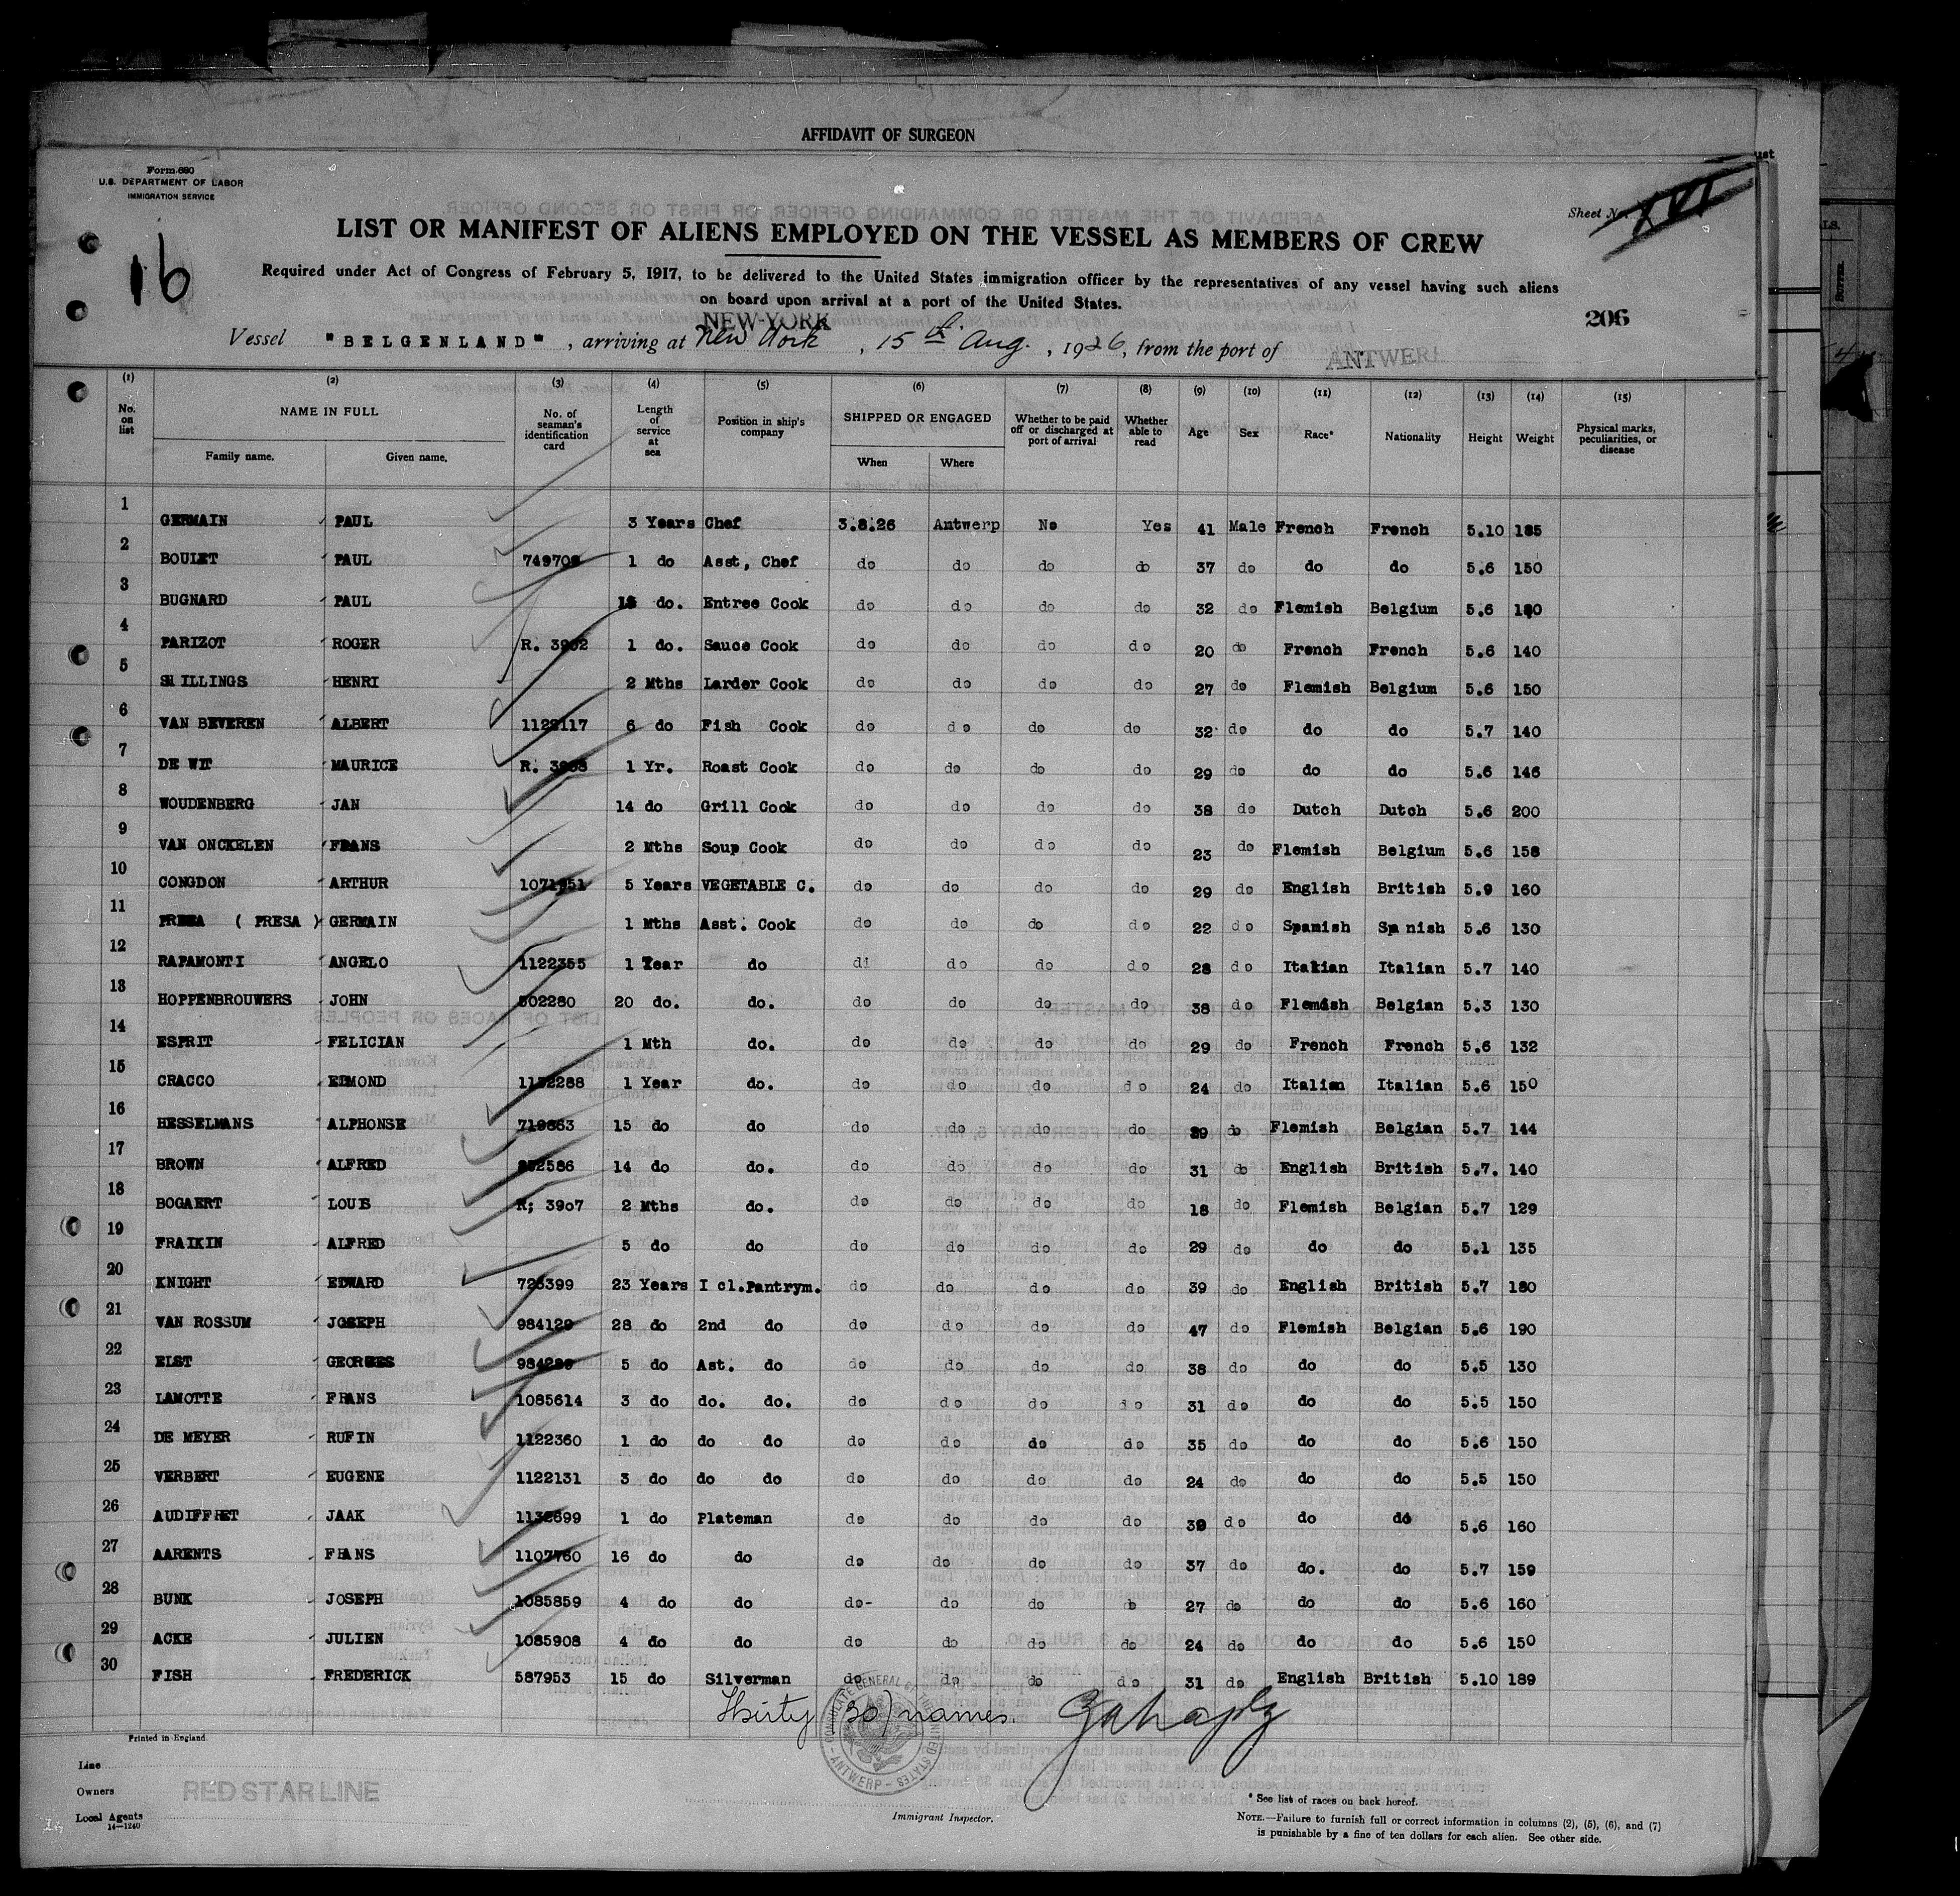 AFFIDAVIT OF SURGEON
Form 680
U.S. DEPARTMENT OF LABOR
IMMIGRATION SERVICE
Sheet No. XVI
16
LIST OR MANIFEST OF ALIENS EMPLOYED ON THE VESSEL AS MEMBERS OF CREW
Required under Act of Congress of February 5, 1917, to be delivered to the United States immigration officer by the representatives of any vessel having such aliens
on board upon arrival at a port of the United States.
NEW-YORK
206
Vessel "BELGENLAND", arriving at New York, 15th Aug., 1926, from the port of ANTWERP
(1) (2) (3) (4) (5) (6) (7) (8) (9) (10) (11) (12) (13) (14) (15)
No. on list NAME IN FULL No. of seaman's identification card Length of service at sea Position in ship's company SHIPPED OR ENGAGED Whether to be paid off or discharged at port of arrival Whether able to read Age Sex Race* Nationality Height Weight Physical marks, peculiarities, or disease
Family name. Given name. When Where
1 GERMAIN PAUL 3 Years Chef 3.8.26 Antwerp No Yes 41 Male French French 5.10 185
2 BOULET PAUL 749709 1 do Asst, Chef do do do do 37 do do do 5.6 150
3 BUGNARD PAUL do. Entree Cook do do do do 32 do Flemish Belgium 5.6
4 PARIZOT ROGER R. 3902 1 do. Sauce Cook do do do do 20 do French French 5.6 140
5 SHILLINGS HENRI 2 Mths Larder Cook do do do do 27 do Flemish Belgium 5.6 150
6 VAN BEVEREN ALBERT 1122117 6 do Fish Cook do do do do 32 do do do 5.7 140
7 DE WIT MAURICE R. 1 Yr. Roast Cook do do do do 29 do do do 5.6 146
8 WOUDENBERG JAN 14 do Grill Cook do do do do 38 do Dutch Dutch 5.6 200
9 VAN ONCKELEN FRANS 2 Mths Soup Cook do do do do 23 do Flemish Belgium 5.6 158
10 CONGDON ARTHUR 1071951 5 Years VEGETABLE C. do do do do 29 do English British 5.9 160
11 (PRESA) GERMAIN 1 Mths Asst. Cook do do do do 22 do Spanish Spanish 5.6 130
12 RAPAMONTI ANGELO 1122355 1 Year do di do do do 28 do Italian Italian 5.7 140
13 HOPPENBROUWERS JOHN 502280 20 do. do. do do do do 38 do Flemish Belgian 5.3 130
14 ESPRIT FELICIAN 1 Mth do. do do do do 29 do French French 5.6 132
15 CRACCO EDMOND 1132288 1 Year do. do do do do 24 do Italian Italian 5.6 150
16 HESSELMANS ALPHONSE 719863 15 do do do do do do 39 do Flemish Belgian 5.7 144
17 BROWN ALFRED 14 do do. do do do do 31 do English British 5.7. 140
18 BOGAERT LOUIS R; 3907 2 Mths do. do do do do 18 do Flemish Belgian 5.7 129
19 FRAIKIN ALFRED 5 do do do do do do 29 do do do 5.1 135
20 KNIGHT EDWARD 726399 23 Years I cl.Pantrym. do do do do 39 do English British 5.7 180
21 VAN ROSSUM JOSEPH 984129 28 do 2nd do do do do do 47 do Flemish Belgian 5.6 190
22 ELST GEORGES 5 do Ast. do do do do do 38 do do do 5.5 130
23 LAMOTTE FRANS 1085614 3 do do. do. do do do do 31 do do do 5.5 150
24 DE MEYER RUFIN 1122360 1 do do do do do do do 35 do do do 5.6 150
25 VERBERT EUGENE 1122131 3 do do do do do do do 24 do do do 5.5 150
26 AUDIFFRET JAAK 1132699 1 do Plateman do do do do 39 do do do 5.6 160
27 AARENTS FRANS 1107760 16 do do do do do do 37 do do. do 5.7 159
28 BUNK JOSEPH 1085859 4 do do do- do do do 27 do do do 5.6 160
29 ACKE JULIEN 1085908 4 do do do do do do 24 do do do 5.6 150
30 FISH FREDERICK 587953 15 do Silverman do do do do 31 do English British 5.10 189
Thirty (30) names.
CONSULATE GENERAL OF THE UNITED STATES - ANTWERP -
Printed in England.
Line
Owners RED STAR LINE
Local Agents
14-1240
Immigrant Inspector.
* See list of races on back hereof.
NOTE.—Failure to furnish full or correct information in columns (2), (5), (6), and (7)
is punishable by a fine of ten dollars for each alien. See other side.